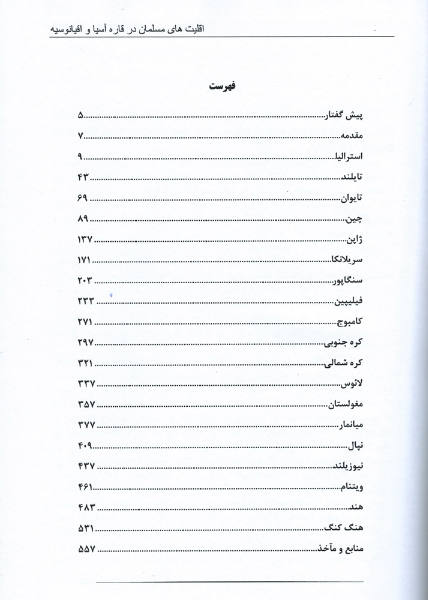 اقلیت های مسلمان در قاره آسیا و اقیانوسیه
فهرست
پیش گفتار...................۵
مقدمه...................۷
استرالیا...................۹
تایلند...................۴۳
تایوان...................۶۹
چین...................۸۹
ژاپن...................۱۳۷
سریلانکا...................۱۷۱
سنگاپور...................۲۰۳
فیلیپین...................۲۳۳
کامبوج...................۲۷۱
کره جنوبی...................۲۹۷
کره شمالی...................۳۲۱
لائوس...................۳۳۷
مغولستان...................۳۵۷
میانمار...................۳۷۷
نپال...................۴۰۹
نیوزیلند...................۴۳۷
ویتنام...................۴۶۱
هند...................۴۸۳
هنگ کنگ...................۵۳۱
منابع و مآخذ...................۵۵۷